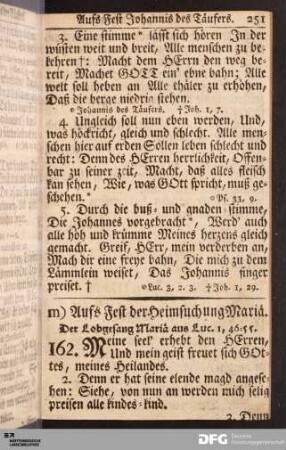 Aufs Fest Johannis des Täufers. 251
3. Eine stimme * lässt sich hören In der
wüsten weit und breit, Alle menschen zu be-
kehren†: Macht dem HErrn den weg be-
reit, Machet GOTT ein' ebne bahn; Alle
welt soll heben an Alle thäler zu erhöhen,
Daß die berge niedrig stehen.
* Johannis des Täufers. † Joh. 1, 7.
4. Ungleich soll nun eben werden, Und,
was höckricht, gleich und schlecht. Alle men-
schen hier auf erden Sollen leben schlecht und
recht: Denn des HErren herrlichkeit, Offen-
bar zu seiner zeit, Macht, daß alles fleisch
kan sehen, Wie, was GOtt spricht, muß ge-
schehen. * * Ps. 33, 9.
5. Durch die buß- und gnaden-stimme,
Die Johannes vorgebracht *, Werd' auch
alle höh und krümme Meines herzens gleich
gemacht. Greif, HErr, mein verderben an,
Mach dir eine freye bahn, Die mich zu dem
Lämmlein weiset, Das Johannis finger
preiset. † * Luc. 3, 2. 3. † Joh. 1, 29.
m) Aufs Fest der Heimsuchung Mariä.
Der Lobgesang Mariä aus Luc. 1, 46-55.
162. Meine seel' erhebt den HErren,
Und mein geist freuet sich GOt-
tes, meines Heilandes.
2. Denn er hat seine elende magd angese-
hen: Siehe, von nun an werden mich selig
preisen alle kindes-kind.
3. Denn
DFG Deutsche
Forschungsgemeinschaft